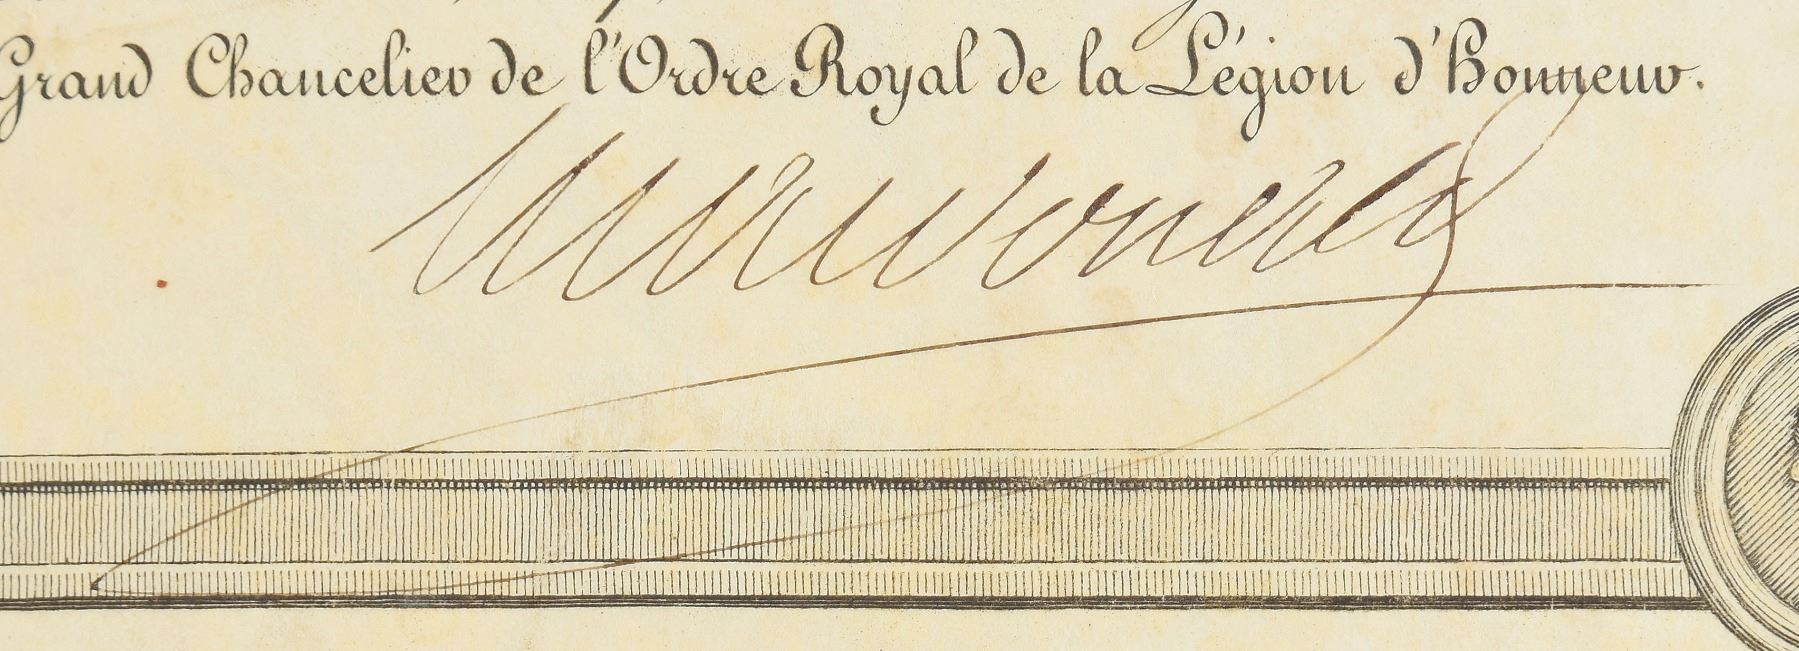 Grand Chancelier de l'Ordre Royal de la Légion d'Honneur.